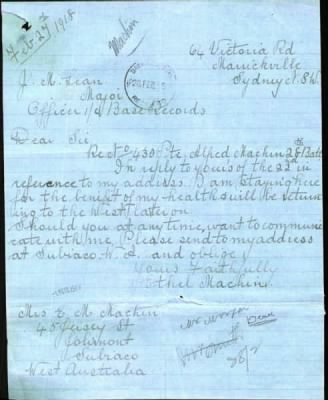 Feb. 24th 1918
Mackin
64 Victoria Rd
Marrickville
Sydney N.S.W.
J. M. Lean
Major
Officer I/C Base Records
Dear Sir
Re No 430 Pte Alfred Mackin 28th Batt
In reply to yours of the 22nd in
reference to my address. I am staying here
for the benefit of my health & will be return
ing to the West later on
Should you at any time, want to commune
cate with me, Please send to my address
at Subiaco, W. A. and oblige
Yours Faithfully
Ethel Mackin
Mrs E. M. Mackin
45 Jersey St
Jolimont
Subiaco
West Australia
28/2